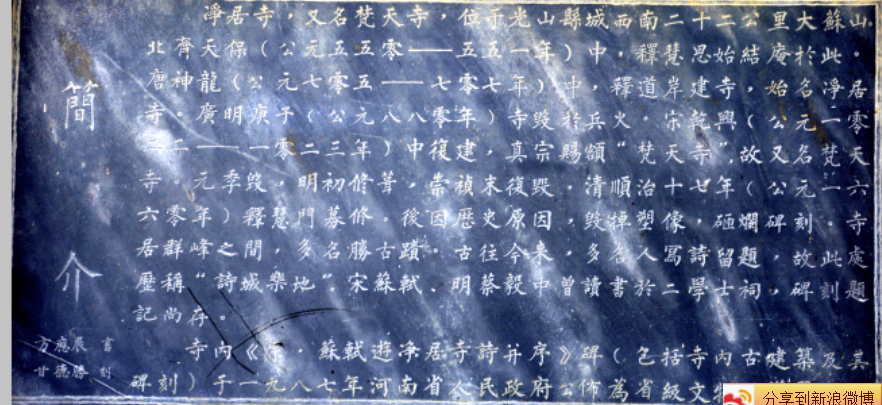 簡介
淨居寺，又名梵天寺，位于光山縣城西南二十二公里大蘇山。
北齊天保（公元五五零——五五一年）中，釋慧思始結庵於此。
唐神龍（公元七零五——七零七年）中，釋道岸建寺，始名淨居
寺。廣明庚子（公元八八零年）寺毀於兵火。宋乾興（公元一零
二二——一零二三年）中復建，真宗賜額“梵天寺”，故又名梵天
寺。元季毀，明初修葺，崇禎末復毀。清順治十七年（公元一六
六零年）釋慧門募修。後因歷史原因，毀掉塑像，砸爛碑刻。寺
居群峰之間，多名勝古蹟。古往今來，多名人寫詩留題，故此處
歷稱“詩城樂地”。宋蘇軾、明蔡毅中曾讀書於二學士祠，碑刻題
記尚存。
寺内《宋·蘇軾遊净居寺詩并序》碑（包括寺内古建築及其
碑刻）于一九八七年河南省人民政府公佈為省級文
方應辰 書
甘德勝 刻
分享到新浪微博